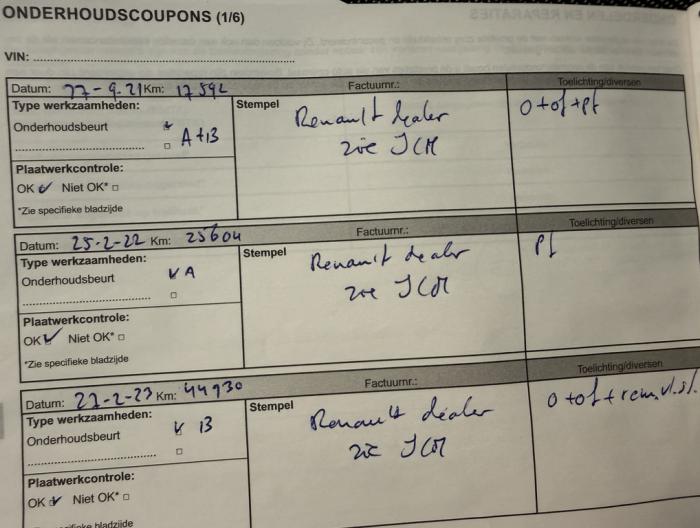 ONDERHOUDSCOUPONS (1/6)
VIN:
Datum: 27-9-21 Km: 17592 Factuurnr.: Toelichting/diversen
Type werkzaamheden: Stempel Renault dealer O+of+pf
Onderhoudsbeurt A+B zie ICM
Plaatwerkcontrole:
OK Niet OK*
*Zie specifieke bladzijde
Datum: 25-2-22 Km: 25604 Factuurnr.: Toelichting/diversen
Type werkzaamheden: Stempel Renault dealer pf
Onderhoudsbeurt V A zie ICM
Plaatwerkcontrole:
OK Niet OK*
*Zie specifieke bladzijde
Datum: 2-23 Km: 44930 Factuurnr.: Toelichting/diversen
Type werkzaamheden: Stempel Renault dealer O+of+rem.vl.st.
Onderhoudsbeurt V B zie ICM
Plaatwerkcontrole:
OK Niet OK*
bladzijde